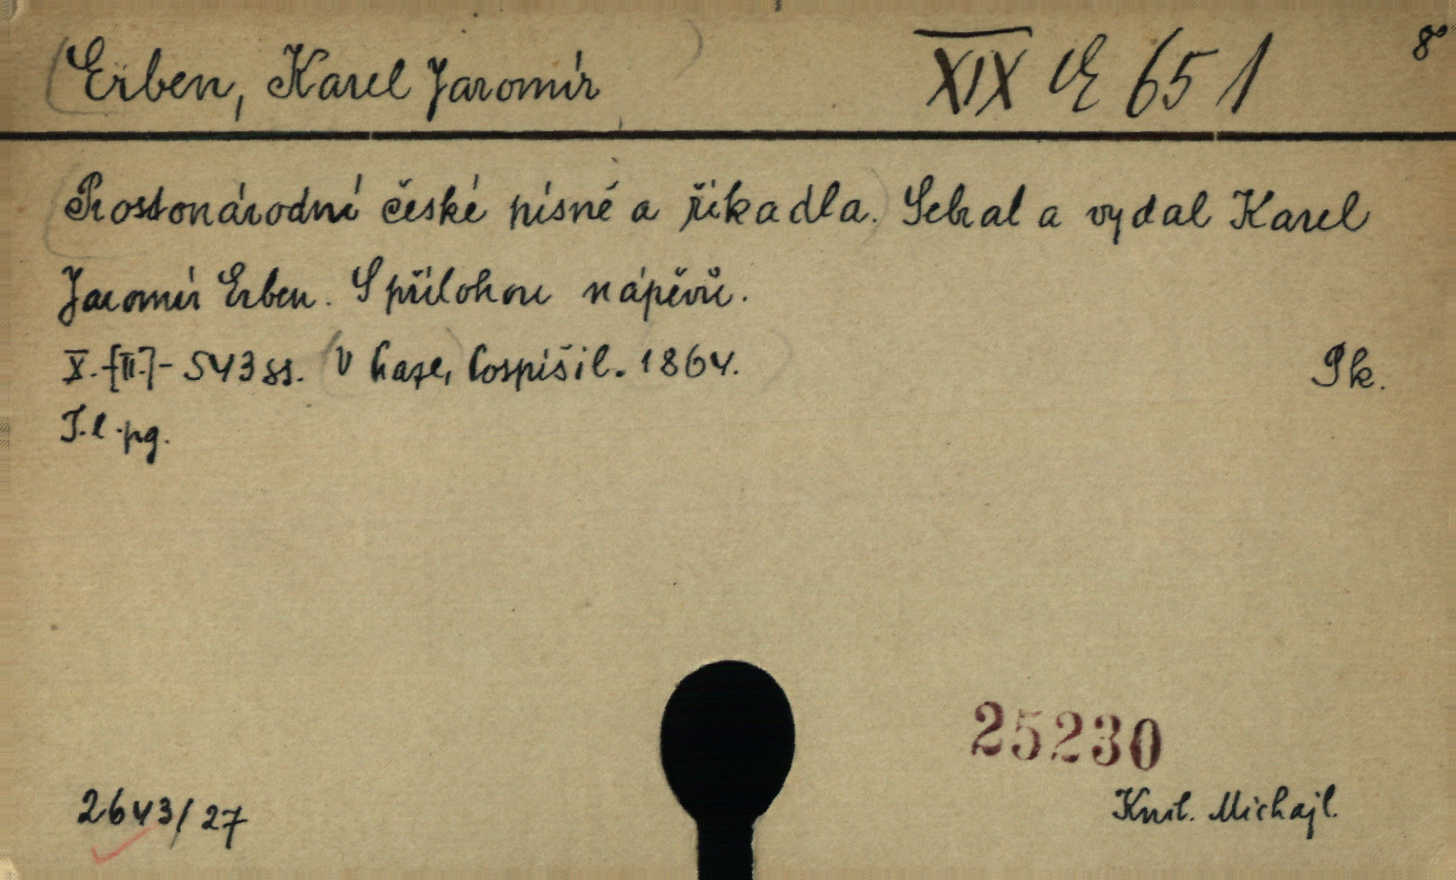 Erben, Karel Jaromír XIX E 651 8°
Prostonárodní české písně a říkadla. Sebral a vydal Karel
Jaromír Erben. S přílohou nápěvů.
X.-[II.]- 543 ss. V Praze, Pospíšil. 1864. Pk.
T.l.pg.
25230
2643/27 Knit. Michajl.